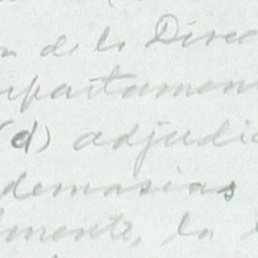 n de la Direc
epartamen
(d) adjudi
demasias
lmente, la